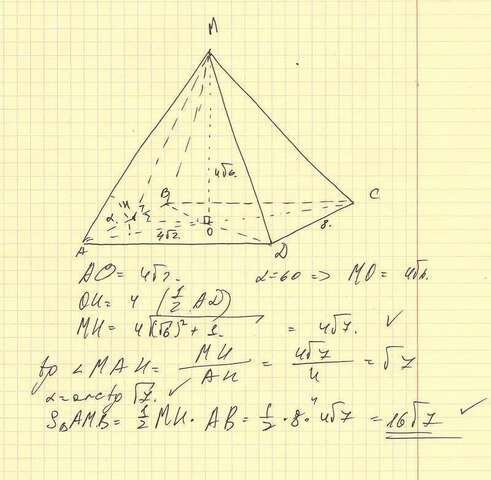 M
4√6
B
C
α
4√2
O
8.
A
D
AO = 4√2. α=60 => MO = 4√6.
OK = 4 (1/2 AD)
MK = 4√(√6)² + 1. = 4√7. ✓
tg ∠MAK = MK/AK = 4√7/4 = √7
α = arctg √7. ✓
S AMB = 1/2 MK · AB = 1/2 · 8 · 4√7 = 16√7 ✓